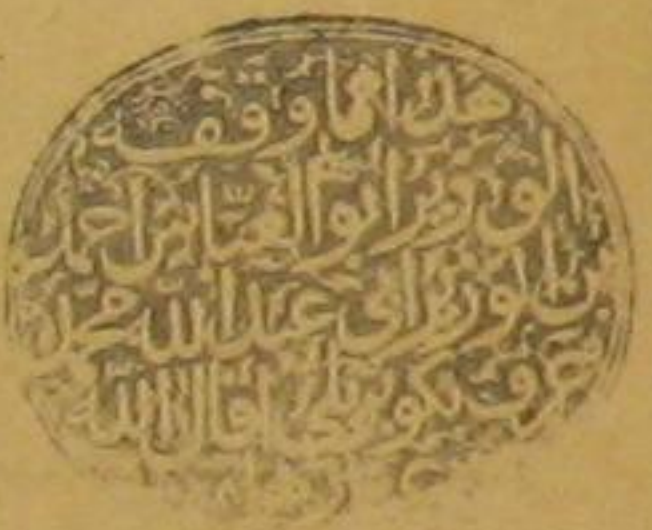 هذا مما وقفه
الوزير ابو العباس احمد
بن الوزير ابي عبد الله محمد
عرف بكوپريلي اقال الله